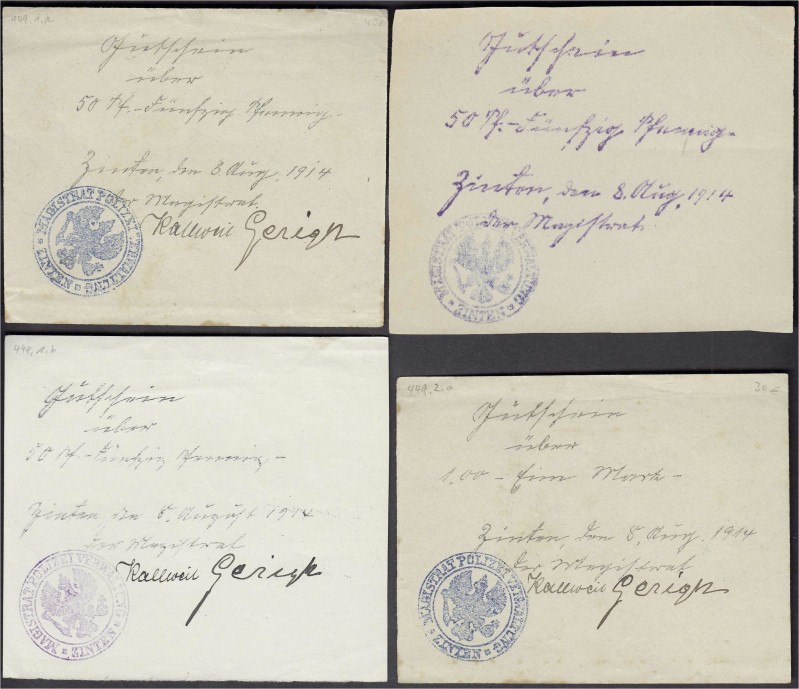 449.1.a
Gutschein
über
50 Pf. - Fünfzig Pfennig -
Zinten, den 8. Aug. 1914
der Magistrat
Kallweit Gerigk
MAGISTRAT POLIZEI VERWALTUNG ZINTEN
Gutschein
über
50 Pf. - Fünfzig Pfennig -
Zinten, den 8. Aug. 1914
der Magistrat
MAGISTRAT POLIZEI VERWALTUNG ZINTEN
449.1.b
Gutschein
über
50 Pf. - Fünfzig Pfennig -
Zinten, den 8. August 1914
der Magistrat
Kallweit Gerigk
MAGISTRAT POLIZEI VERWALTUNG ZINTEN
449.2.a
Gutschein
über
1.00 - Eine Mark -
Zinten, den 8. Aug. 1914
der Magistrat
Kallweit Gerigk
MAGISTRAT POLIZEI VERWALTUNG ZINTEN